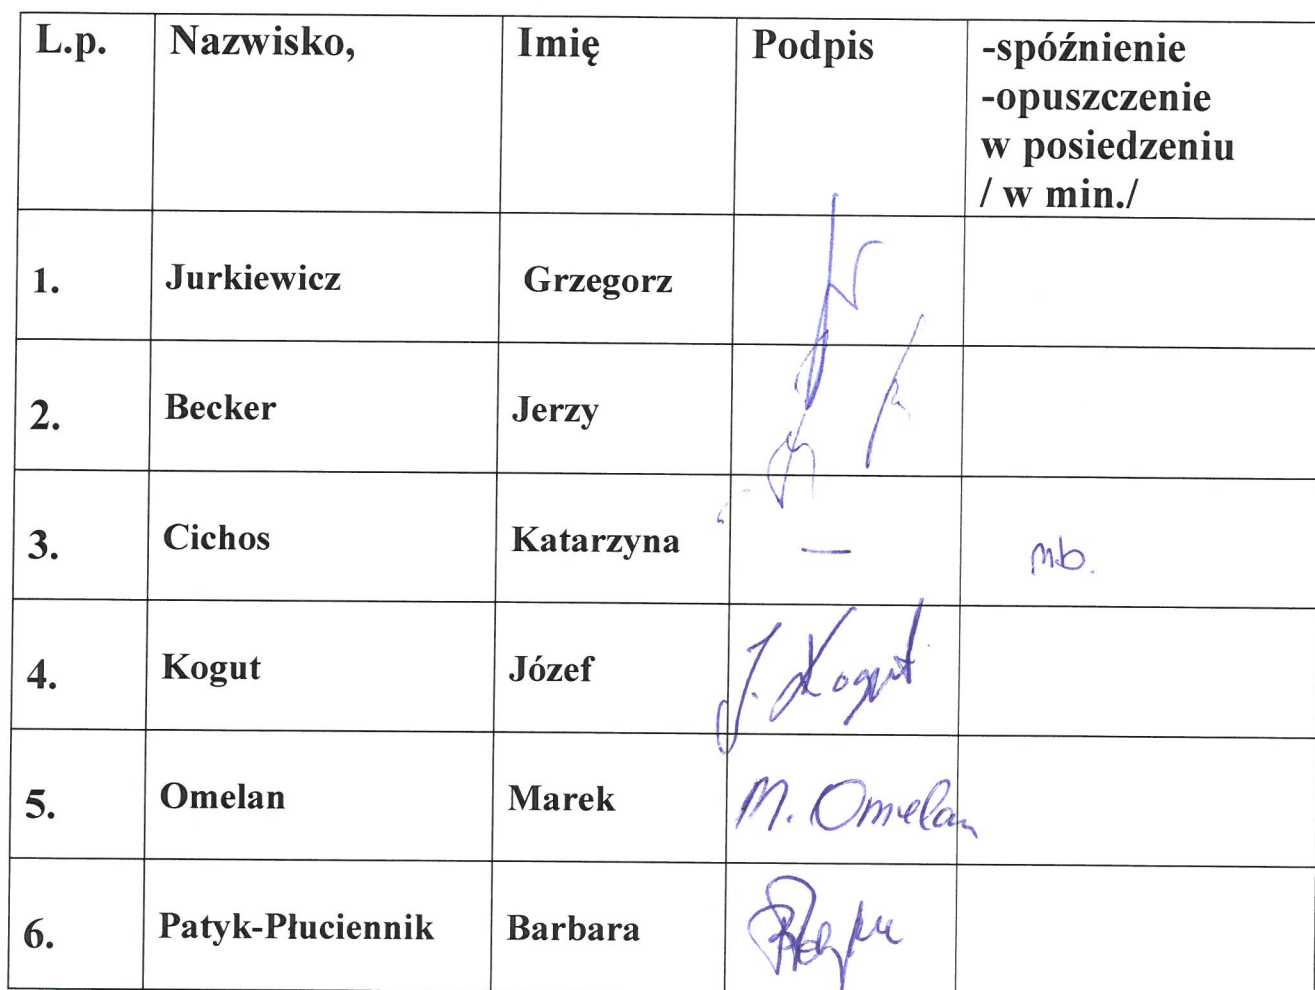 L.p. Nazwisko, Imię Podpis -spóźnienie
-opuszczenie
w posiedzeniu
/ w min./
1. Jurkiewicz Grzegorz
2. Becker Jerzy
3. Cichos Katarzyna — nb.
4. Kogut Józef J. Kogut
5. Omelan Marek M. Omelan
6. Patyk-Płuciennik Barbara